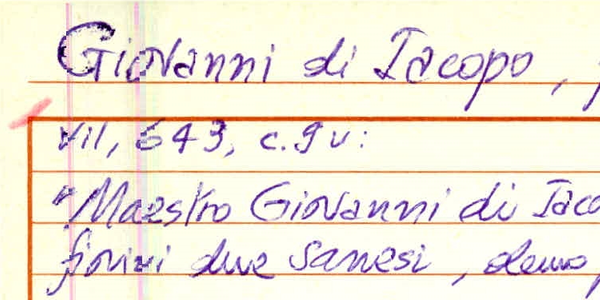 Giovanni di Iacopo,
VII, 543, c. 9v:
"Maestro Giovanni di Iaco
fiorini due sanesi, demo